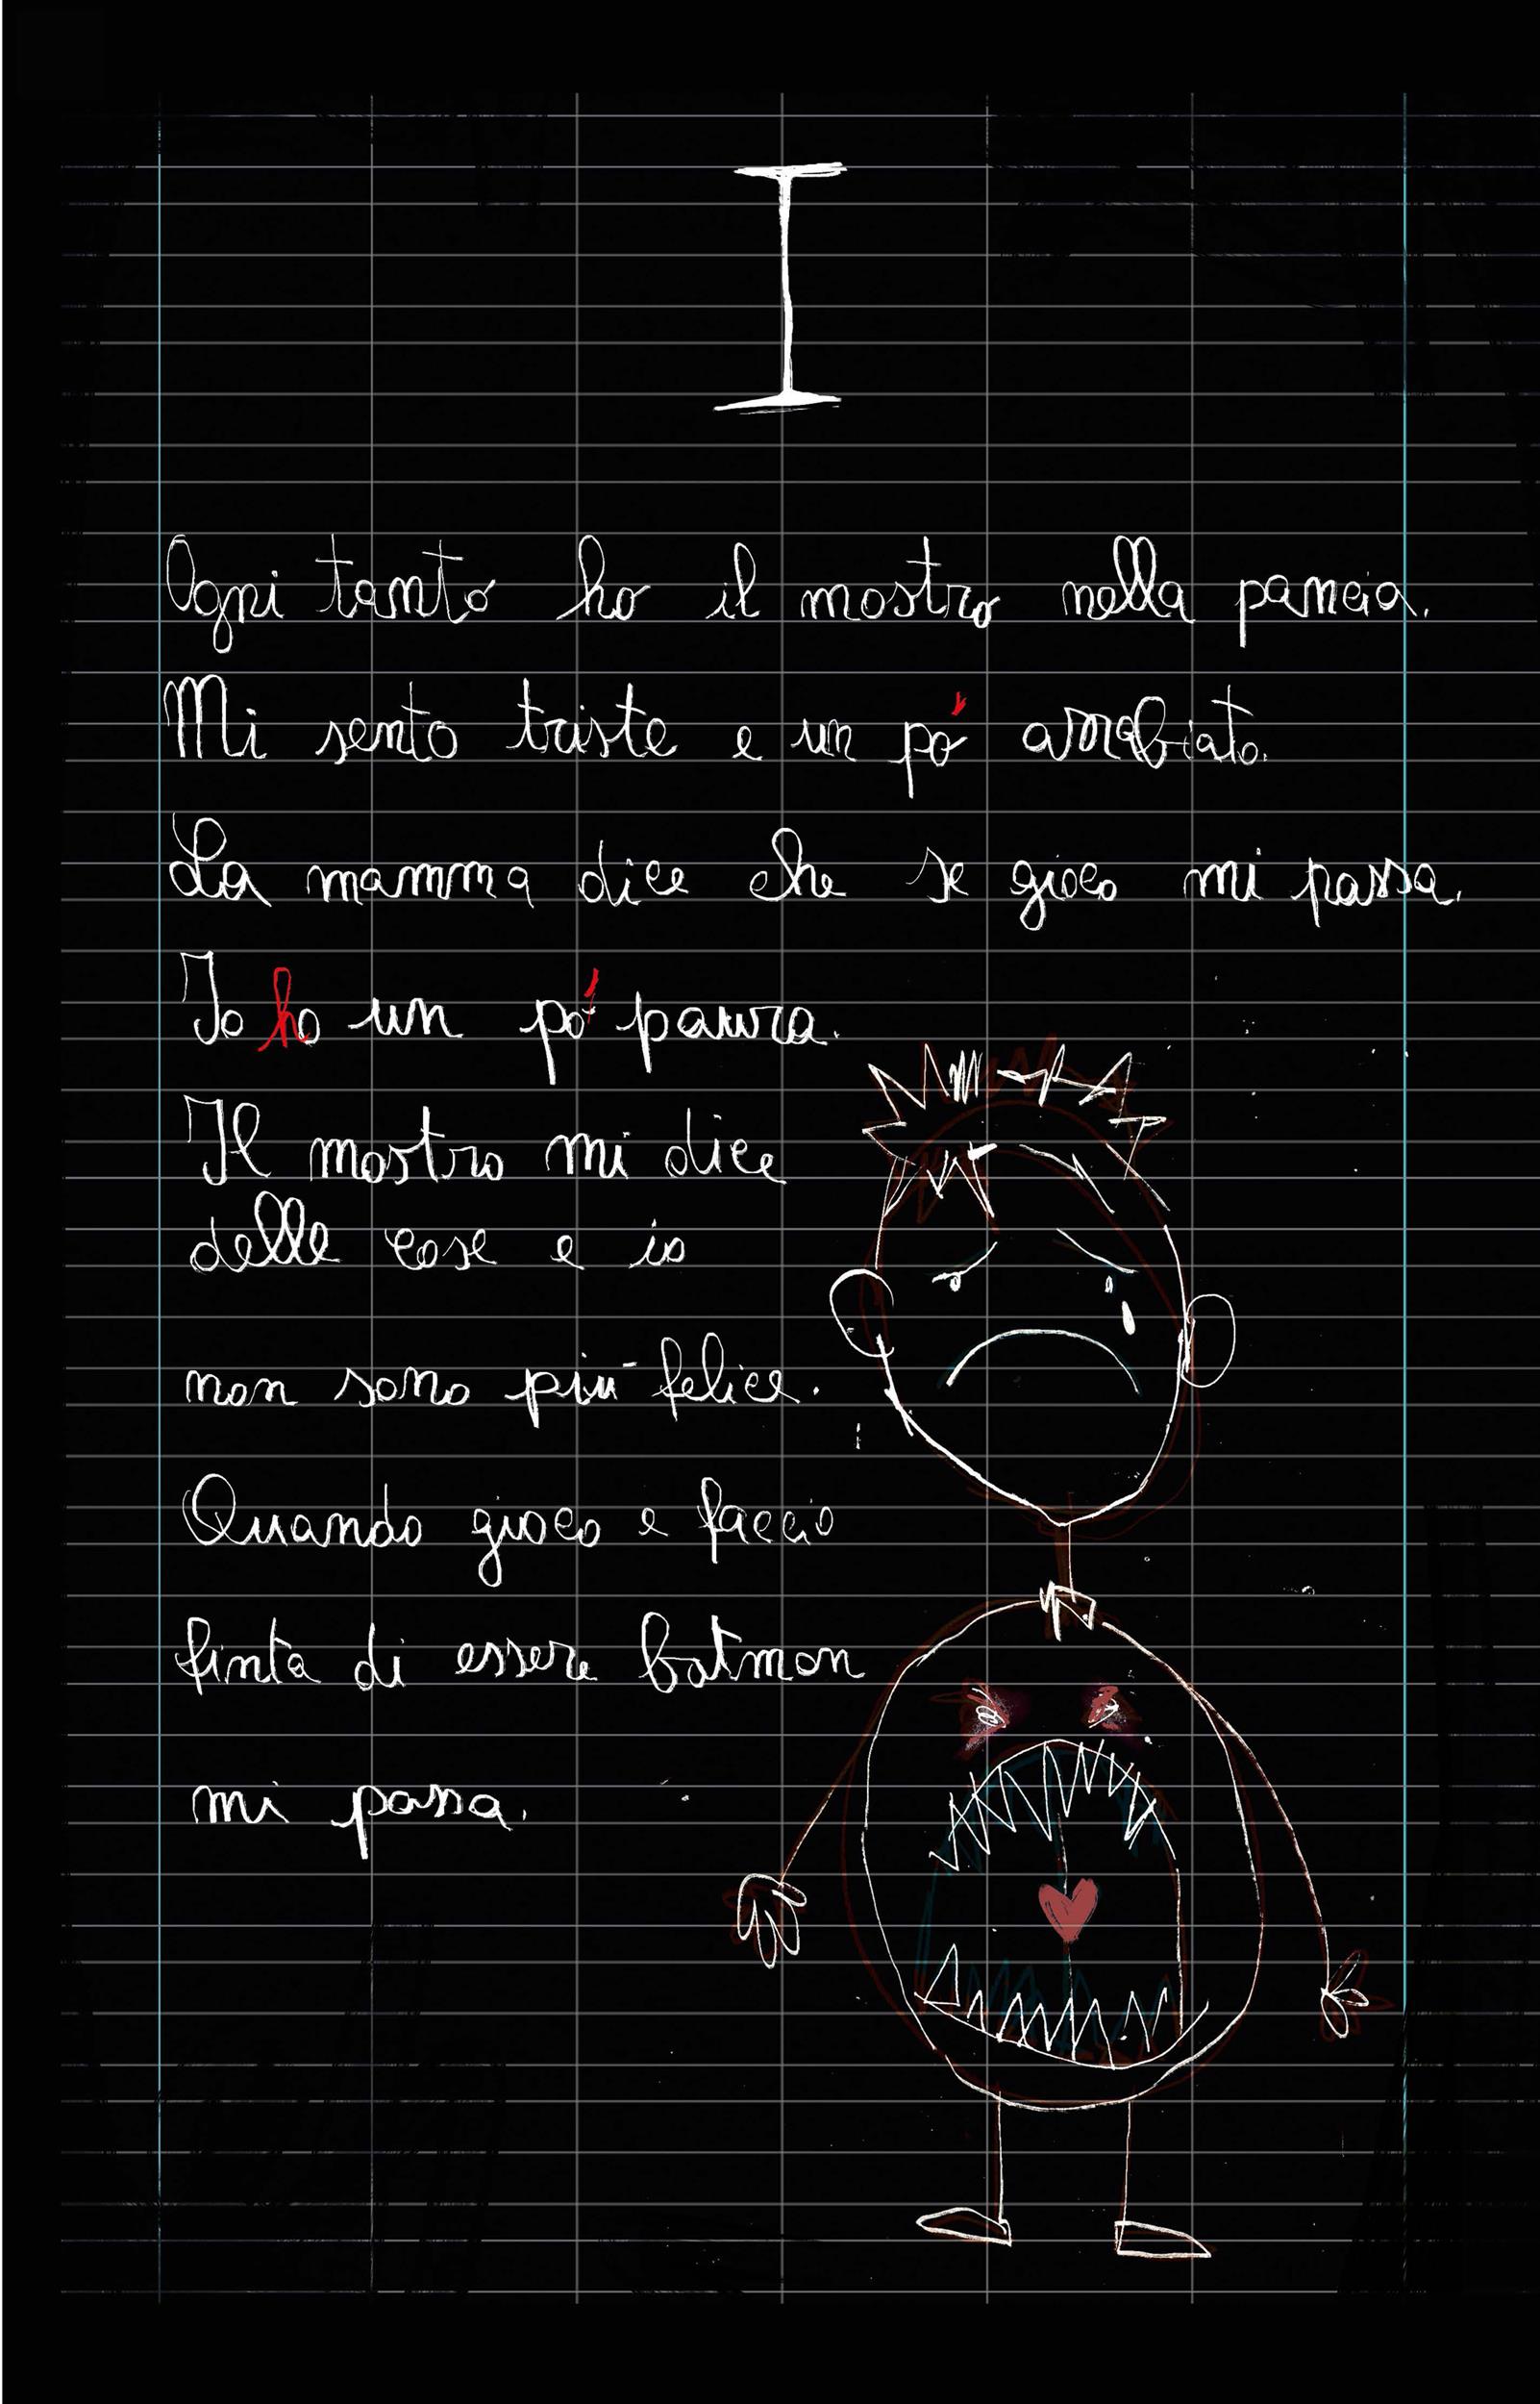 I
Ogni tanto ho il mostro nella pancia.
Mi sento triste e un po' arrabiato.
La mamma dice che se gioco mi passa.
Io ho un po' paura.
Il mostro mi dice
delle cose e io
non sono più felice.
Quando gioco e faccio
finta di essere batman
mi passa.